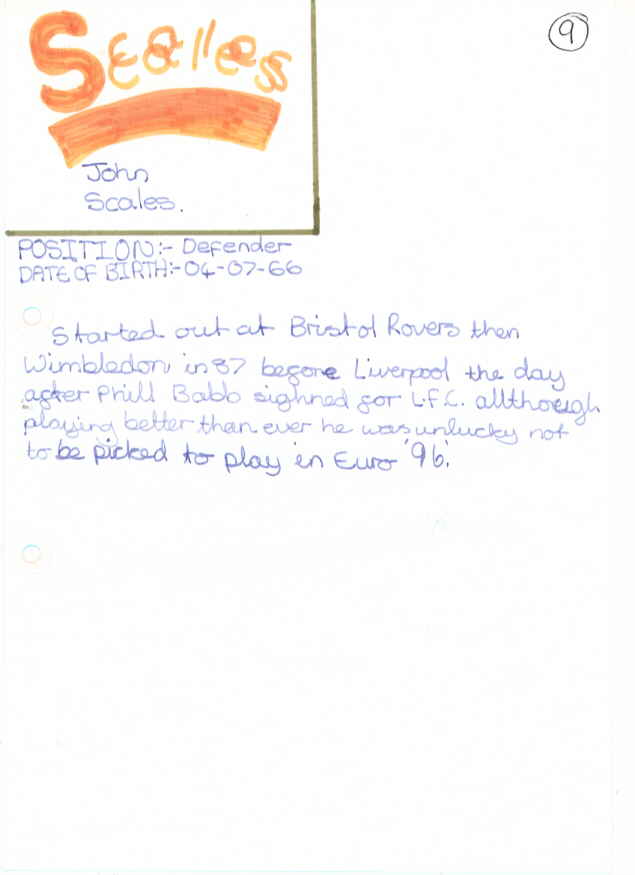 Scales
9
John
Scales.
POSITION:- Defender
DATE OF BIRTH:- 04-07-66
Started out at Bristol Rovers then
Wimbledon in 87 before Liverpool the day
after Phill Babb sighned for L.F.C. allthough
playing better than ever he was unlucky not
to be picked to play in Euro '96'.